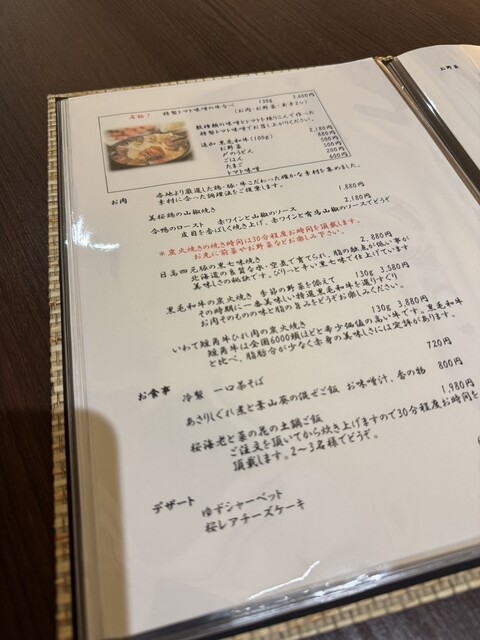 お野菜
特製トマト味噌の味合 130g 3,600円
(お肉・お野菜・玉子2ヶ)
数種類の味噌とトマトを練りこんで作った
特製トマト味噌でお召し上がりください。
追加 黒毛和牛(100g) 2,180円
お野菜 880円
〆のうどん 500円
ごはん 500円
たまご 200円
トマト味噌 600円
お肉 各地より厳選した鶏・豚・牛こだわった確かな素材を集めました。
素材に合った調理法をご提案します。
美桜鶏の山椒焼き 1,880円
合鴨のロースト 赤ワインと山椒のソース 2,180円
皮目を香ばしく焼き上げ、赤ワインと有馬山椒のソースでどうぞ
※炭火焼きの焼き時間は30分程度お時間を頂戴します。
お先に前菜やお野菜などお楽しみ下さい。
日高四元豚の黒七味焼き 2,880円
北海道の良質な水・空気で育てられ、脂の融点が低い事が
美味しさの秘訣です。ぴりっと辛い黒七味で仕上げています
黒毛和牛の炭火焼き 季節の野菜を添えて 130g 3,580円
その時期に一番美味しい特選黒毛和牛を選りすぐり
お肉そのものの味と脂の旨みをどうぞお楽しみください。
いわて短角牛ひれ肉の炭火焼き 130g 3,880円
短角牛は全国6000頭ほどと希少価値の高い牛です。黒毛和牛
と比べ、脂肪分が少なく赤身の美味しさには定評があります。
お食事 冷製 一口茶そば 720円
あさりしぐれ煮と葉山葵の混ぜご飯 お味噌汁、香の物 800円
桜海老と菜の花の土鍋ご飯 1,980円
ご注文を頂いてから炊き上げますので30分程度お時間を
頂戴します。2〜3名様でどうぞ。
デザート ゆずシャーベット
桜レアチーズケーキ